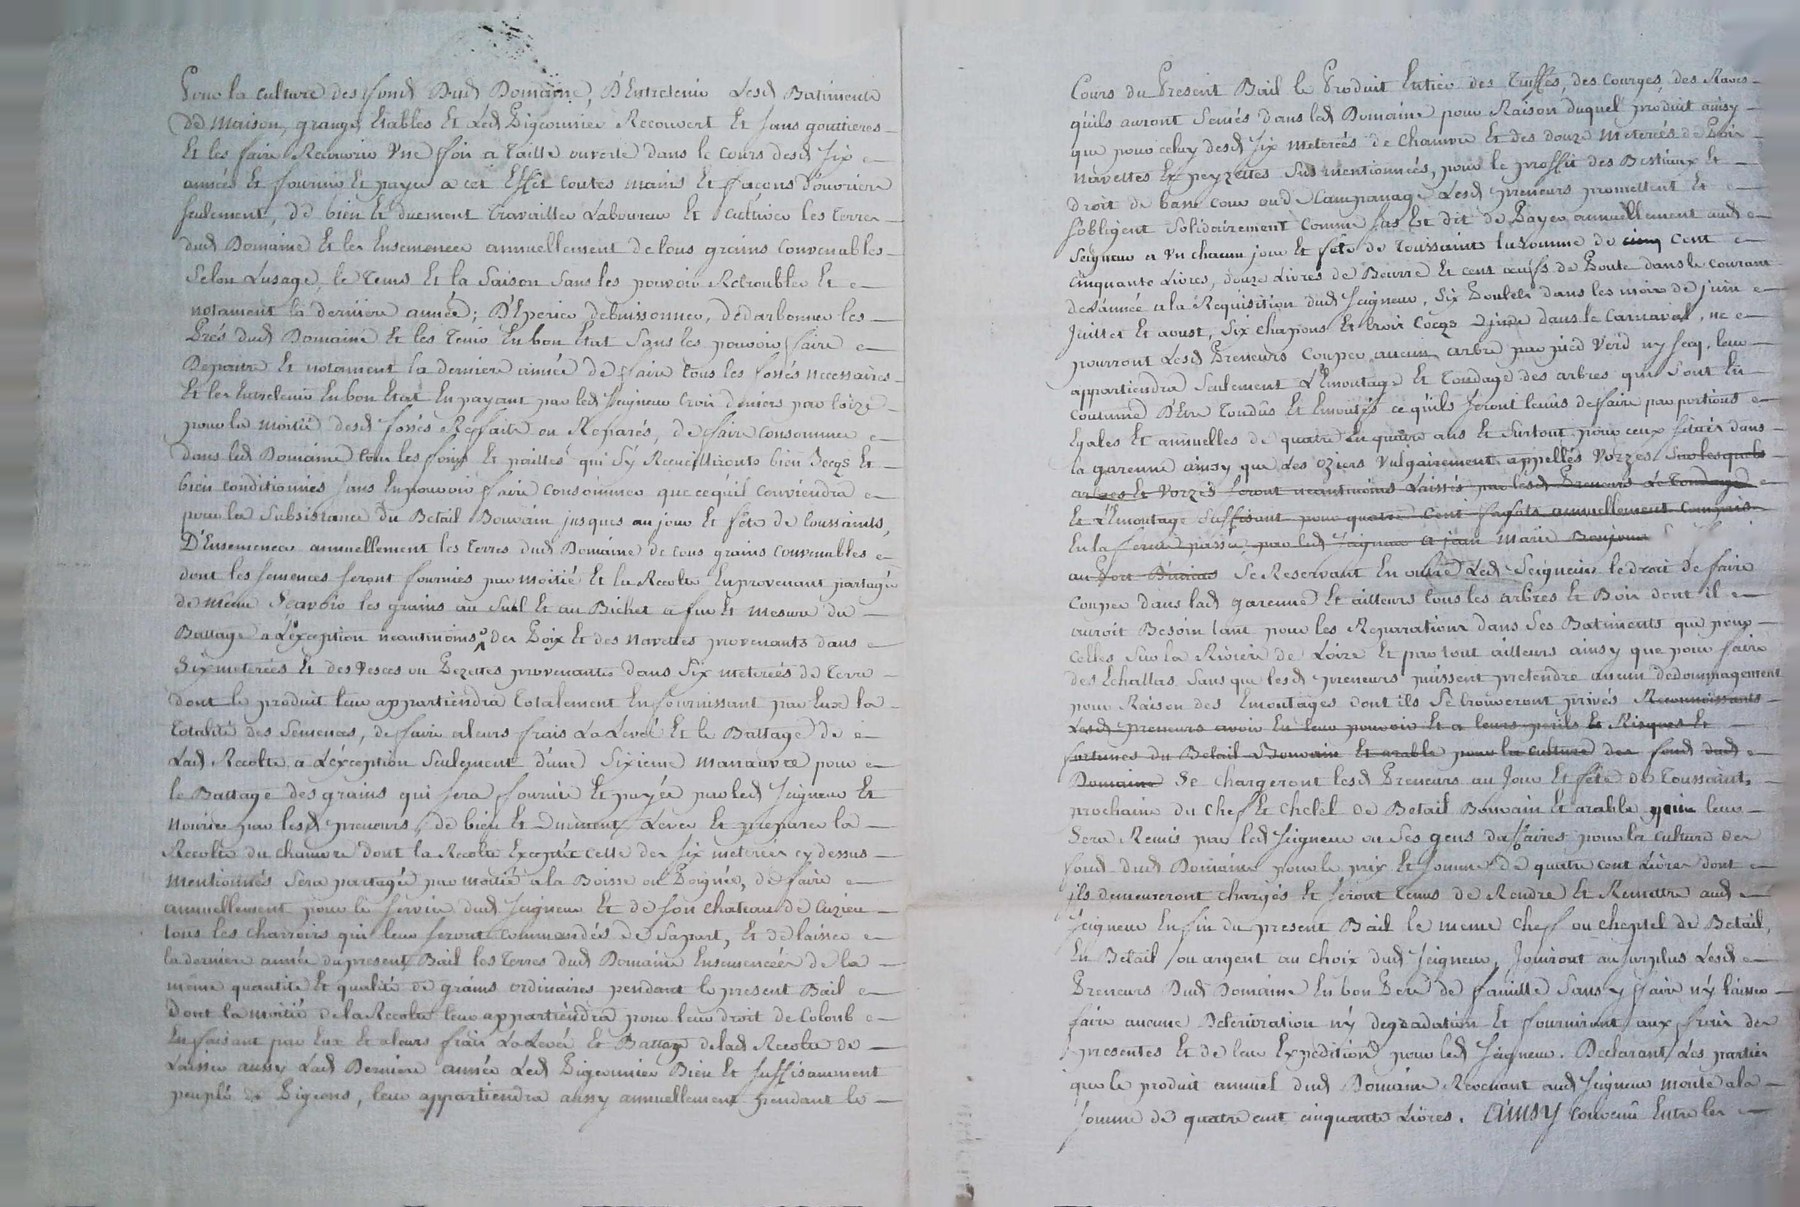 Pour la culture des fonds Dud Domaine, D'Entretenir Lesd Batiments
de maison, grange, Etables Et Led Pigeonnier Recouvert Et sans gouttieres
Et les faire Recouvrir Une fois a Taille ouverte dans le cours desd Six
années Et fournir Et payer a cet Effet toutes mains Et façons d'ouvriers
seulement, de bien Et duement Travailler Labourer Et Cultiver les Terres
dud Domaine Et les Ensemencer annuellement de tous grains convenables
Selon L'usage, le Tems Et la Saison sans les pouvoir Retroubler Et
notament la derniere année; D'Epierrer debuissonner, dedarbonner les
Prés dud Domaine Et les Tenir En bon Etat Sans les pouvoir faire
Depaitre Et notament la derniere année de faire tous les fossés necessaires
Et les Entretenir En bon Etat En payant par led Seigneur trois deniers par toize
pour la moitié desd fossés Refaits ou Reparés, de faire consommer
dans led Domaine tous les foins Et pailles qui s'y Recueilliront bien Secqs Et
bien conditionnés sans En pouvoir faire consommer que ce qu'il conviendra
pour la Subsistance du Betail Bouvain jusques au jour Et fête de toussaints,
D'Ensemencer annuellement les terres dud Domaine de tous grains convenables
dont les semences seront fournies par moitié Et la Recolte En provenant partagée
de même Scavoir les grains au Suel Et au Bichet a fur Et mesure du
Battage a L'exception neantmoins des Poix Et des navettes provenants dans
Six meterées Et des Vesces ou Pezettes provenantes dans Six meterées de Terre
dont le produit leur appartiendra totalement En fournissant par Eux la
totalité des Semences, de faire a leurs frais La Levée Et le Battage de
Lad Recolte, a L'exception seulement d'une Sixieme manœuvre pour
le Battage des grains qui sera fournie Et payée par led Seigneur Et
nourrie par lesd preneurs, de bien Et Duement Lever Et preparer la
Recolte du chanvre dont la Recolte Exceptée celle des Six meterées cy dessus
mentionnés Sera partagée par moitié a la Boisse ou Poignée, de faire
annuellement pour le service dud Seigneur Et de son chateau de Cuzieu
tous les charrois qui leur seront commandés de Sa part, Et de laisser
la derniere année du present Bail les Terres dud Domaine Ensemencées de la
même quantité Et qualité de grains ordinaires pendant le present Bail
Dont la moitié de la Recolte leur appartiendra pour leur droit de Colonb
En faisant par Eux Et a leurs frais La Levée Et Battage de lad Recolte de
Laisser aussy Lad Derniere année Led Pigeonnier Bien Et Suffisamment
peuplé de Pigeons, leur appartiendra aussy annuellement pendant le
Cours du Present Bail le Produit Entier des Truffes, des Courges, des Raves
qu'ils auront Semés dans led Domaine pour Raison duquel produit ainsy
que pour celuy desd Six meterées de Chanvre Et des douze meterées de Pois
Navettes Et peyzettes Sus mentionnées, pour le proffit des Bestiaux Et
droit de basse cour ou de Campanage Lesd preneurs promettent Et
s'obligent Solidairement Comme sus Est dit de Payer annuellement aud
Seigneur a Un chacun jour Et fête de Toussaints la somme de cinq Cent
Cinquante Livres, douze Livres de Beurre Et cent œufs de Poule dans le courant
de l'année a la Requisition dud Seigneur, Six Poulets dans les mois de juin
Juillet Et aoust, Six chapons Et trois Cocqs d'inde dans le Carnaval, ne
pourront Lesd Preneurs Couper aucun arbre par pied Verd ny Secq, leur
appartiendra Seulement L'Emoutage Et Tondage des arbres qui Sont En
Coutume D'Etre Tondûs Et Emoutés ce qu'ils Seront tenus de faire par portions
Egales Et annuelles de quatre En quatre ans Et Surtout pour ceux Situés dans
la garenne ainsy que des oziers vulgairement appellés Vorzes Sur lesquels
arbres Et Vorzes seront neantmoins Laissés par lesd Preneurs Le Tondage
Et L'Emoutage Suffisant pour quatre Cent fagots annuellement Compris
En la ferme passée par led Seigneur a jean Marie Bonjour
au Port Se Reservant En outre Led Seigneur le droit de faire
couper dans lad garenne Et ailleurs tous les arbres Et Bois dont il
auroit Besoin tant pour les Reparations dans Ses Batiments que pour
Celles Sur la Riviere de Loire Et par tout ailleurs ainsy que pour faire
des Echallas Sans que lesd preneurs puissent pretendre aucun dedommagement
pour Raison des Emoutages dont ils Se trouveront privés Reconnoissants
Lesd preneurs avoir En leur pouvoir Et a leurs perils Et Risques Et
fortunes du Betail Bouvain Et arable pour la culture des fonds dud
Domaine Se Chargeront lesd Preneurs au Jour Et fête de Toussaints
prochaine du Chef Et Cheptel de Betail Bouvain Et arable qui leur
Sera Remis par led Seigneur ou Ses gens d'affaires pour la culture des
fonds dud Domaine pour le prix Et Somme de quatre cent Livres dont
ils demeureront chargés Et seront Tenus de Rendre Et Remettre aud
Seigneur En fin du present Bail le meme Cheff ou cheptel de Betail,
En Betail ou argent au choix dud Seigneur, Jouiront au Surplus Lesd
Preneurs Dud Domaine En bon Pere de famille Sans y faire n'y laisser
faire aucune Deterioration n'y degradation Et fourniront aux frais des
presentes Et de leur Expedition pour led Seigneur. Declarant Les parties
que le produit annuel dud Domaine Revenant aud Seigneur monte a la
Somme de quatre cent cinquante Livres. Ainsy Convenû Entre les